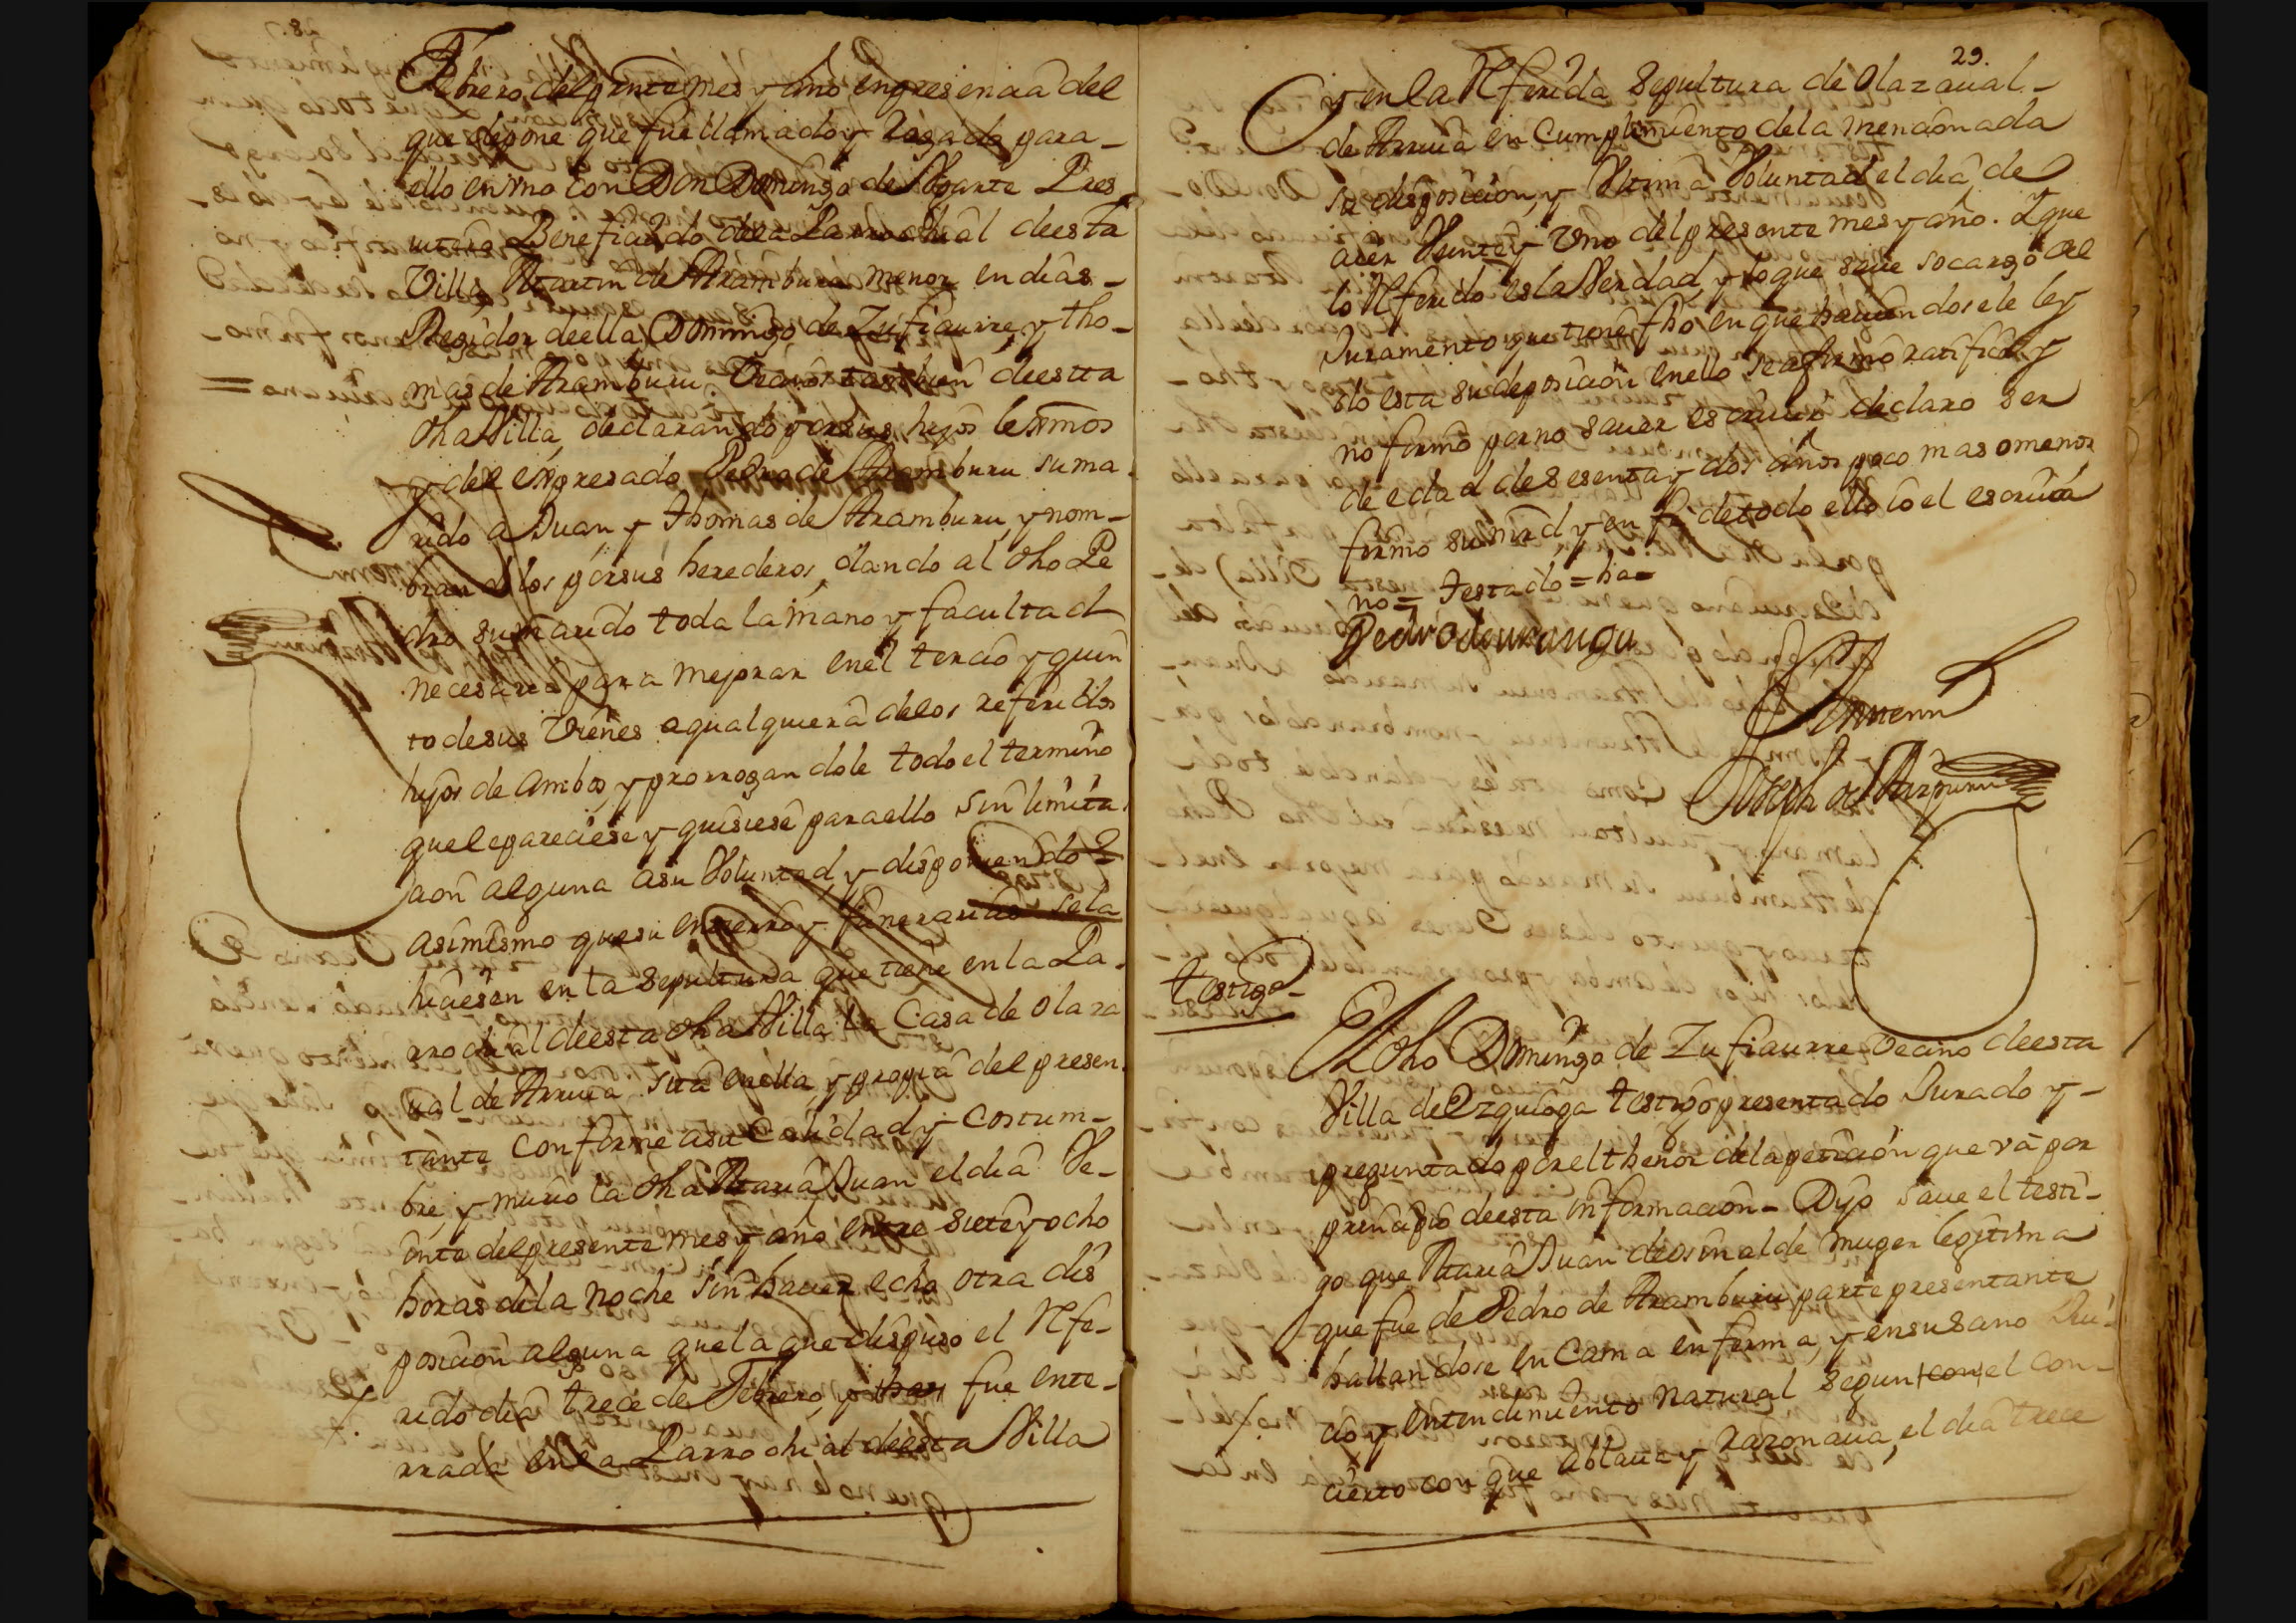 Febrero del preste mes y año en presencia del
que depone que fue llamado y rogado para
ello en uno con Don Domingo de Pres
uitero Beneficiado dela Parrochial deesta
Villa Martin de Aramburu menor en dias
Regidor deella Domingo de Zufiaurre, y tho-
mas de Aramburu Vecinos tambien deesta
dha Villa, declarando por sus hijos letimos
y del expresado Pedro de Aramburu su ma
rido a Juan y Thomas de Aramburu y nom-
brandolos por sus herederos, dando al dho Pe
dro su marido toda la mano y facultad
necesaria para mejorar enel tercio y quin
to desus Vienes aqualquiera delos referidos
hijos de ambos, y prorrogandole todo el termino
quele pareciese y quisiese paraello sin limita
cion alguna asu Voluntad y disponiendo
asimismo quesu entierro y funerarias se la
hiciesen en la sepultura que tiene en la Pa
rrochial deesta dha Villa la Casa de Olaza
ual de Arriua sita enella, y propia del presen
tante conforme asu Calidad y Costum-
bre, y murio la dha Maria Juan el dia Ve-
inte del presente mes y año entre siete y ocho
horas dela noche sin hauer echo otra dis
posicion alguna quela que dispuso el Refe-
rido dia trece de Febrero, y fue ente-
rrada enla Parrochial deesta Villa
29.
y en la Referida Sepultura de Olazaual
de Arriua en Cumplimiento dela mencionada
su disposicion, y Ultima Voluntad el dia de
aier Veinte y Uno del presente mes y año. Y que
lo Referido es la Verdad, y lo que saue socargo del
Juramento que tiene fho en que hauiendosele ley
do esta su deposicion enello se afirmo ratifico y
no firmo por no sauer escriuir declaro ser
de edad de sesenta y dos años poco mas omenos
firmo su mrd, y en fe de todo ello io el escriua
no = testado = hia =
Pedro de uranga
Antemi
Joseph de Aizpuru
testigo
El dho Domingo de Zufiaurre Vecino deesta
Villa de Ezquioga testigo presentado Jurado y
preguntado por el thenor dela peticion que va por
principio deesta informacion - Dijo saue el testi-
go que Maria Juan deosinalde muger legitima
que fue de Pedro de Aramburu parte presentante
hallandose en Cama enferma, y ensu sano Jui-
cio y Entendimiento natural segun con el con-
cierto con que ablaua y razonaua, el dia trece